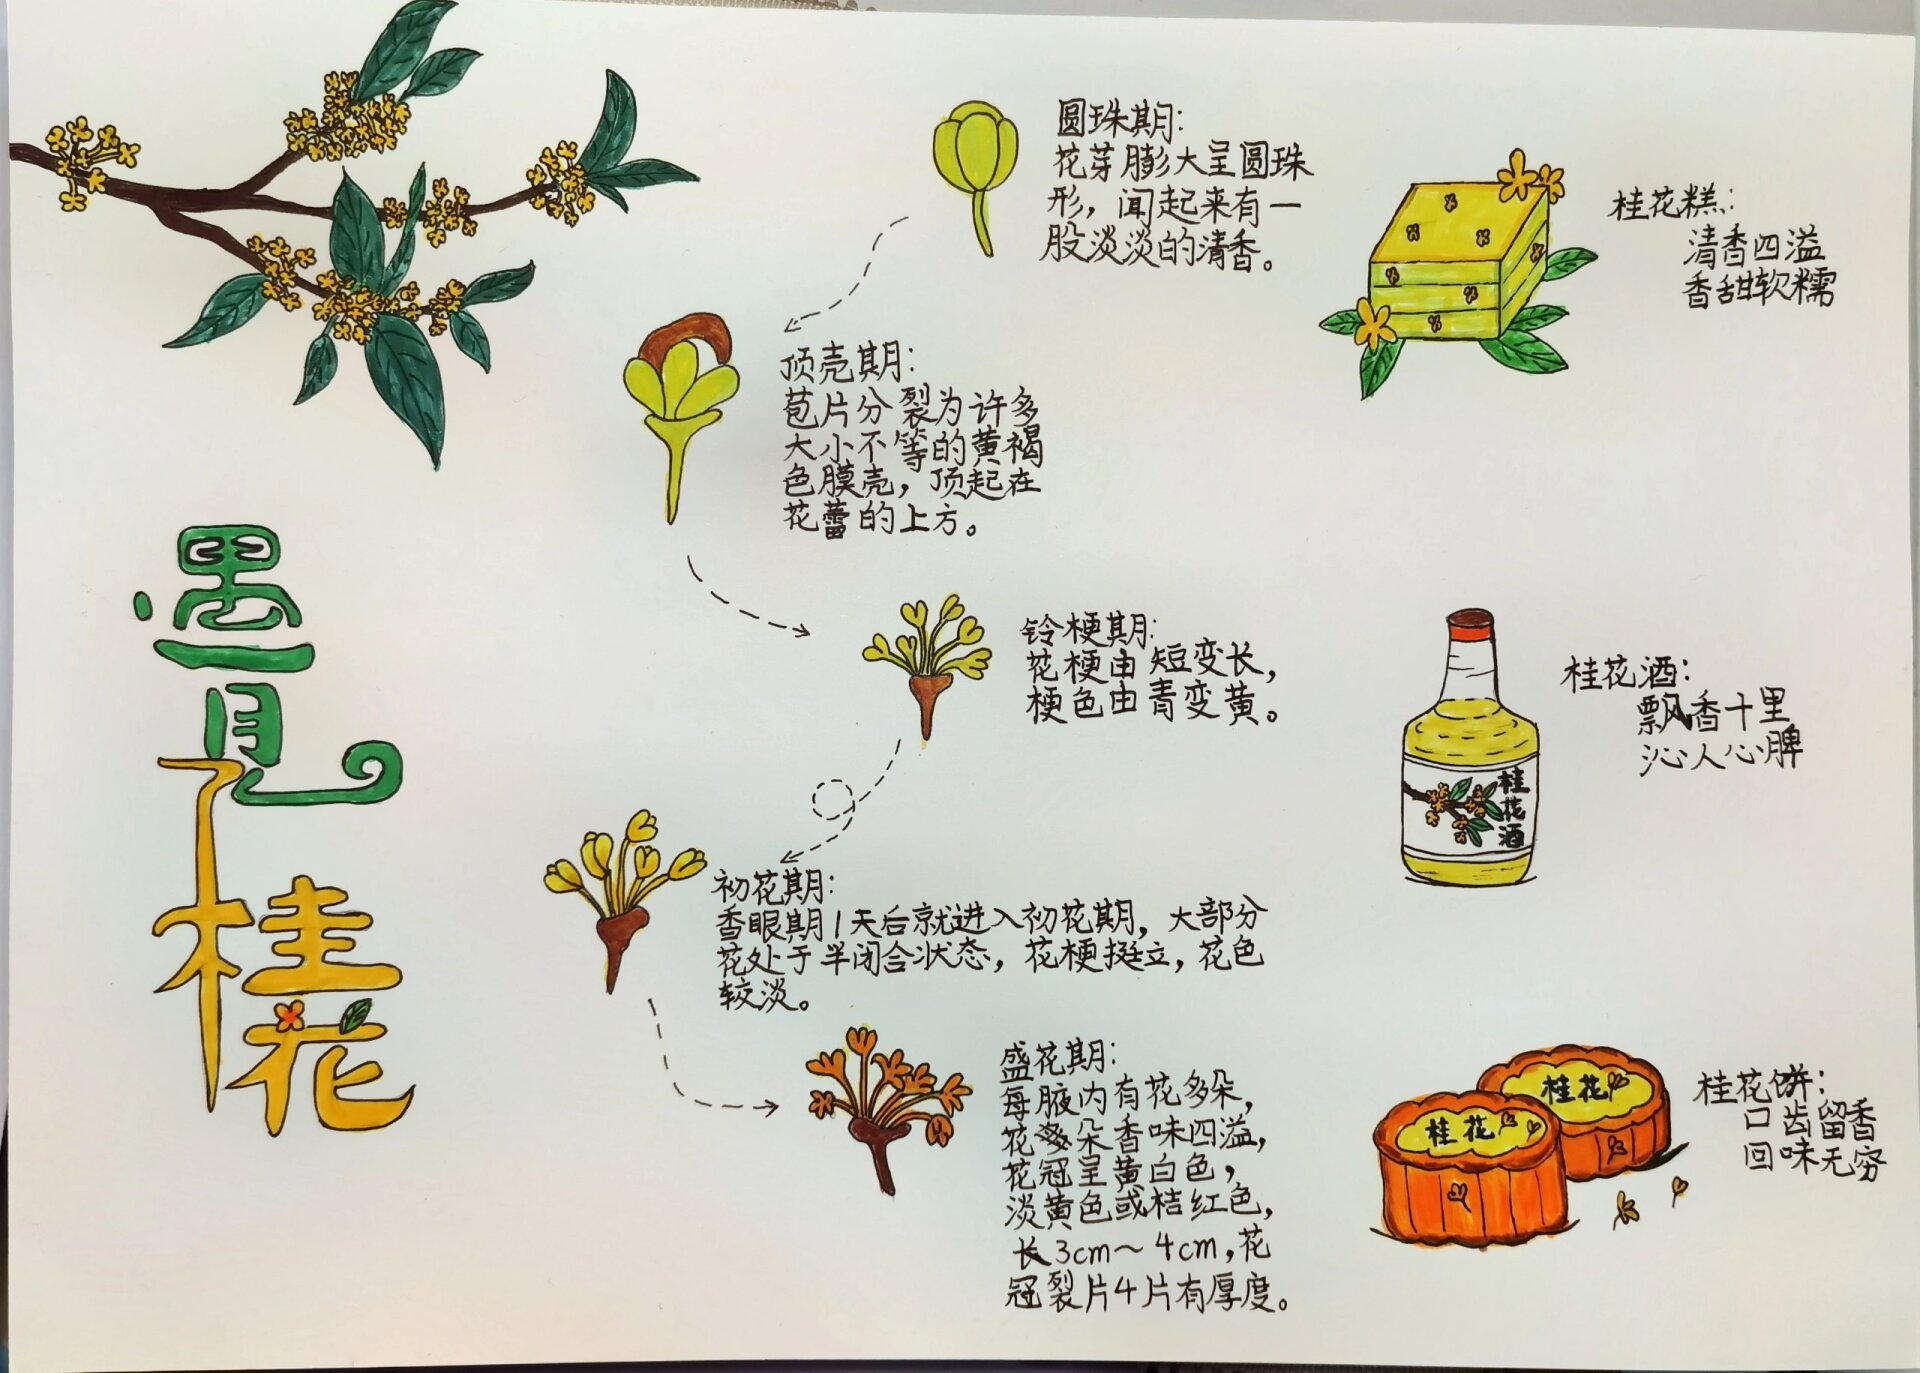 遇见
桂花
圆珠期:
花芽膨大呈圆珠
形，闻起来有一
股淡淡的清香。
顶壳期:
苞片分裂为许多
大小不等的黄褐
色膜壳，顶起在
花蕾的上方。
铃梗期:
花梗由短变长，
梗色由青变黄。
初花期:
香眼期1天后就进入初花期，大部分
花处于半闭合状态，花梗挺立，花色
较淡。
盛花期:
每腋内有花多朵，
花朵香味四溢，
花冠呈黄白色，
淡黄色或桔红色，
长3cm～4cm，花
冠裂片4片有厚度。
桂花糕:
清香四溢
香甜软糯
桂花酒:
飘香十里
沁人心脾
桂花酒
桂花饼:
口齿留香
回味无穷
桂花
桂花